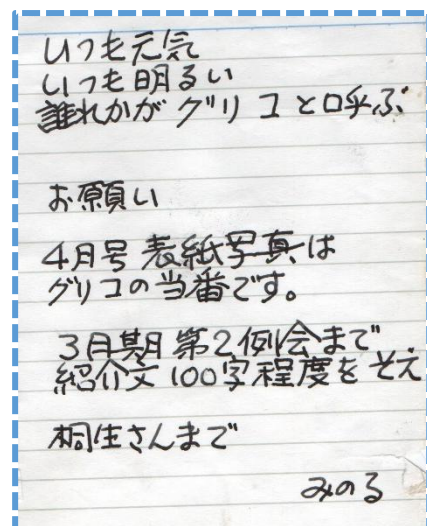 いつも元気
いつも明るい
誰れかがグリコと呼ぶ
お願い
4月号表紙写真は
グリコの当番です。
3月期第2例会まで
紹介文100字程度をそえ
桐生さんまで
みのる